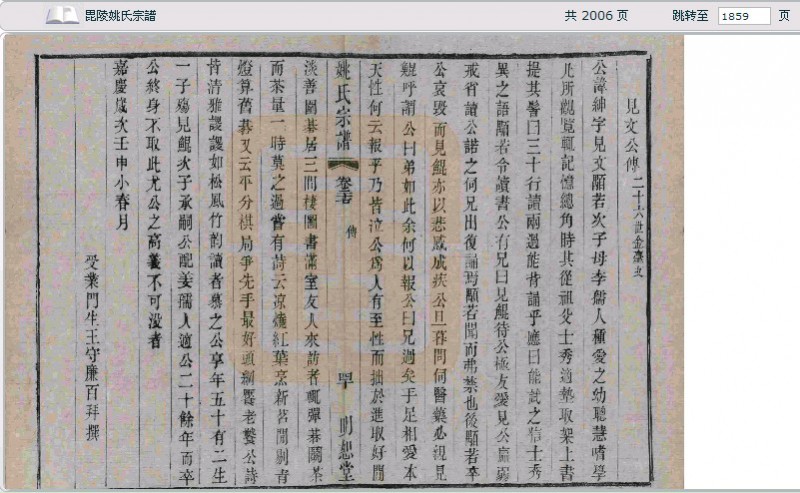 毘陵姚氏宗譜
共 2006 页
跳转至 1859 页
見文公傳 二十六世金臺支
公諱紳字見文顒若次子母李孺人種愛之幼聰慧嗜學
凡所觀覽輒記憶總角時其從祖父士秀適塾取架上書
提其髻曰三十行讀兩過能背誦乎應曰能試之信士秀
異之語顒若令讀書公有兄曰見鯤待公極友愛見公羸弱
戒省讀公諾之伺兄出復誦焉顒若聞而弗禁也後顒若卒
公哀毀而見鯤亦以悲慼成疾公旦暮問伺醫藥必親見
鯤呼謂公曰弟如此余何以報公曰兄過矣手足相愛本
天性何云報乎乃皆泣公為人有至性而拙於進取好閒
姚氏宗譜 卷 傳 明恕堂
淡善圍棊居三間樓圖書滿室友人來訪者輒彈棊鬭茶
而茶量一時莫之過嘗有詩云凉燒紅葉烹新茗閒剔青
燈算舊棊又云平分棋局爭先手最好頭綱饗老饕公詩
皆清雅謖謖如松風竹韵讀者慕之公享年五十有二生
一子殤見鯤次子承嗣公配姜孺人適公二十餘年而卒
公終身不取此尤公之高義不可没者
嘉慶歲次壬申小春月
受業門生王守廉百拜撰